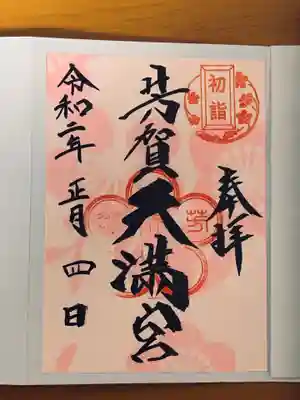 初詣
奉拝
芳賀天満宮
令和二年 正月 四日